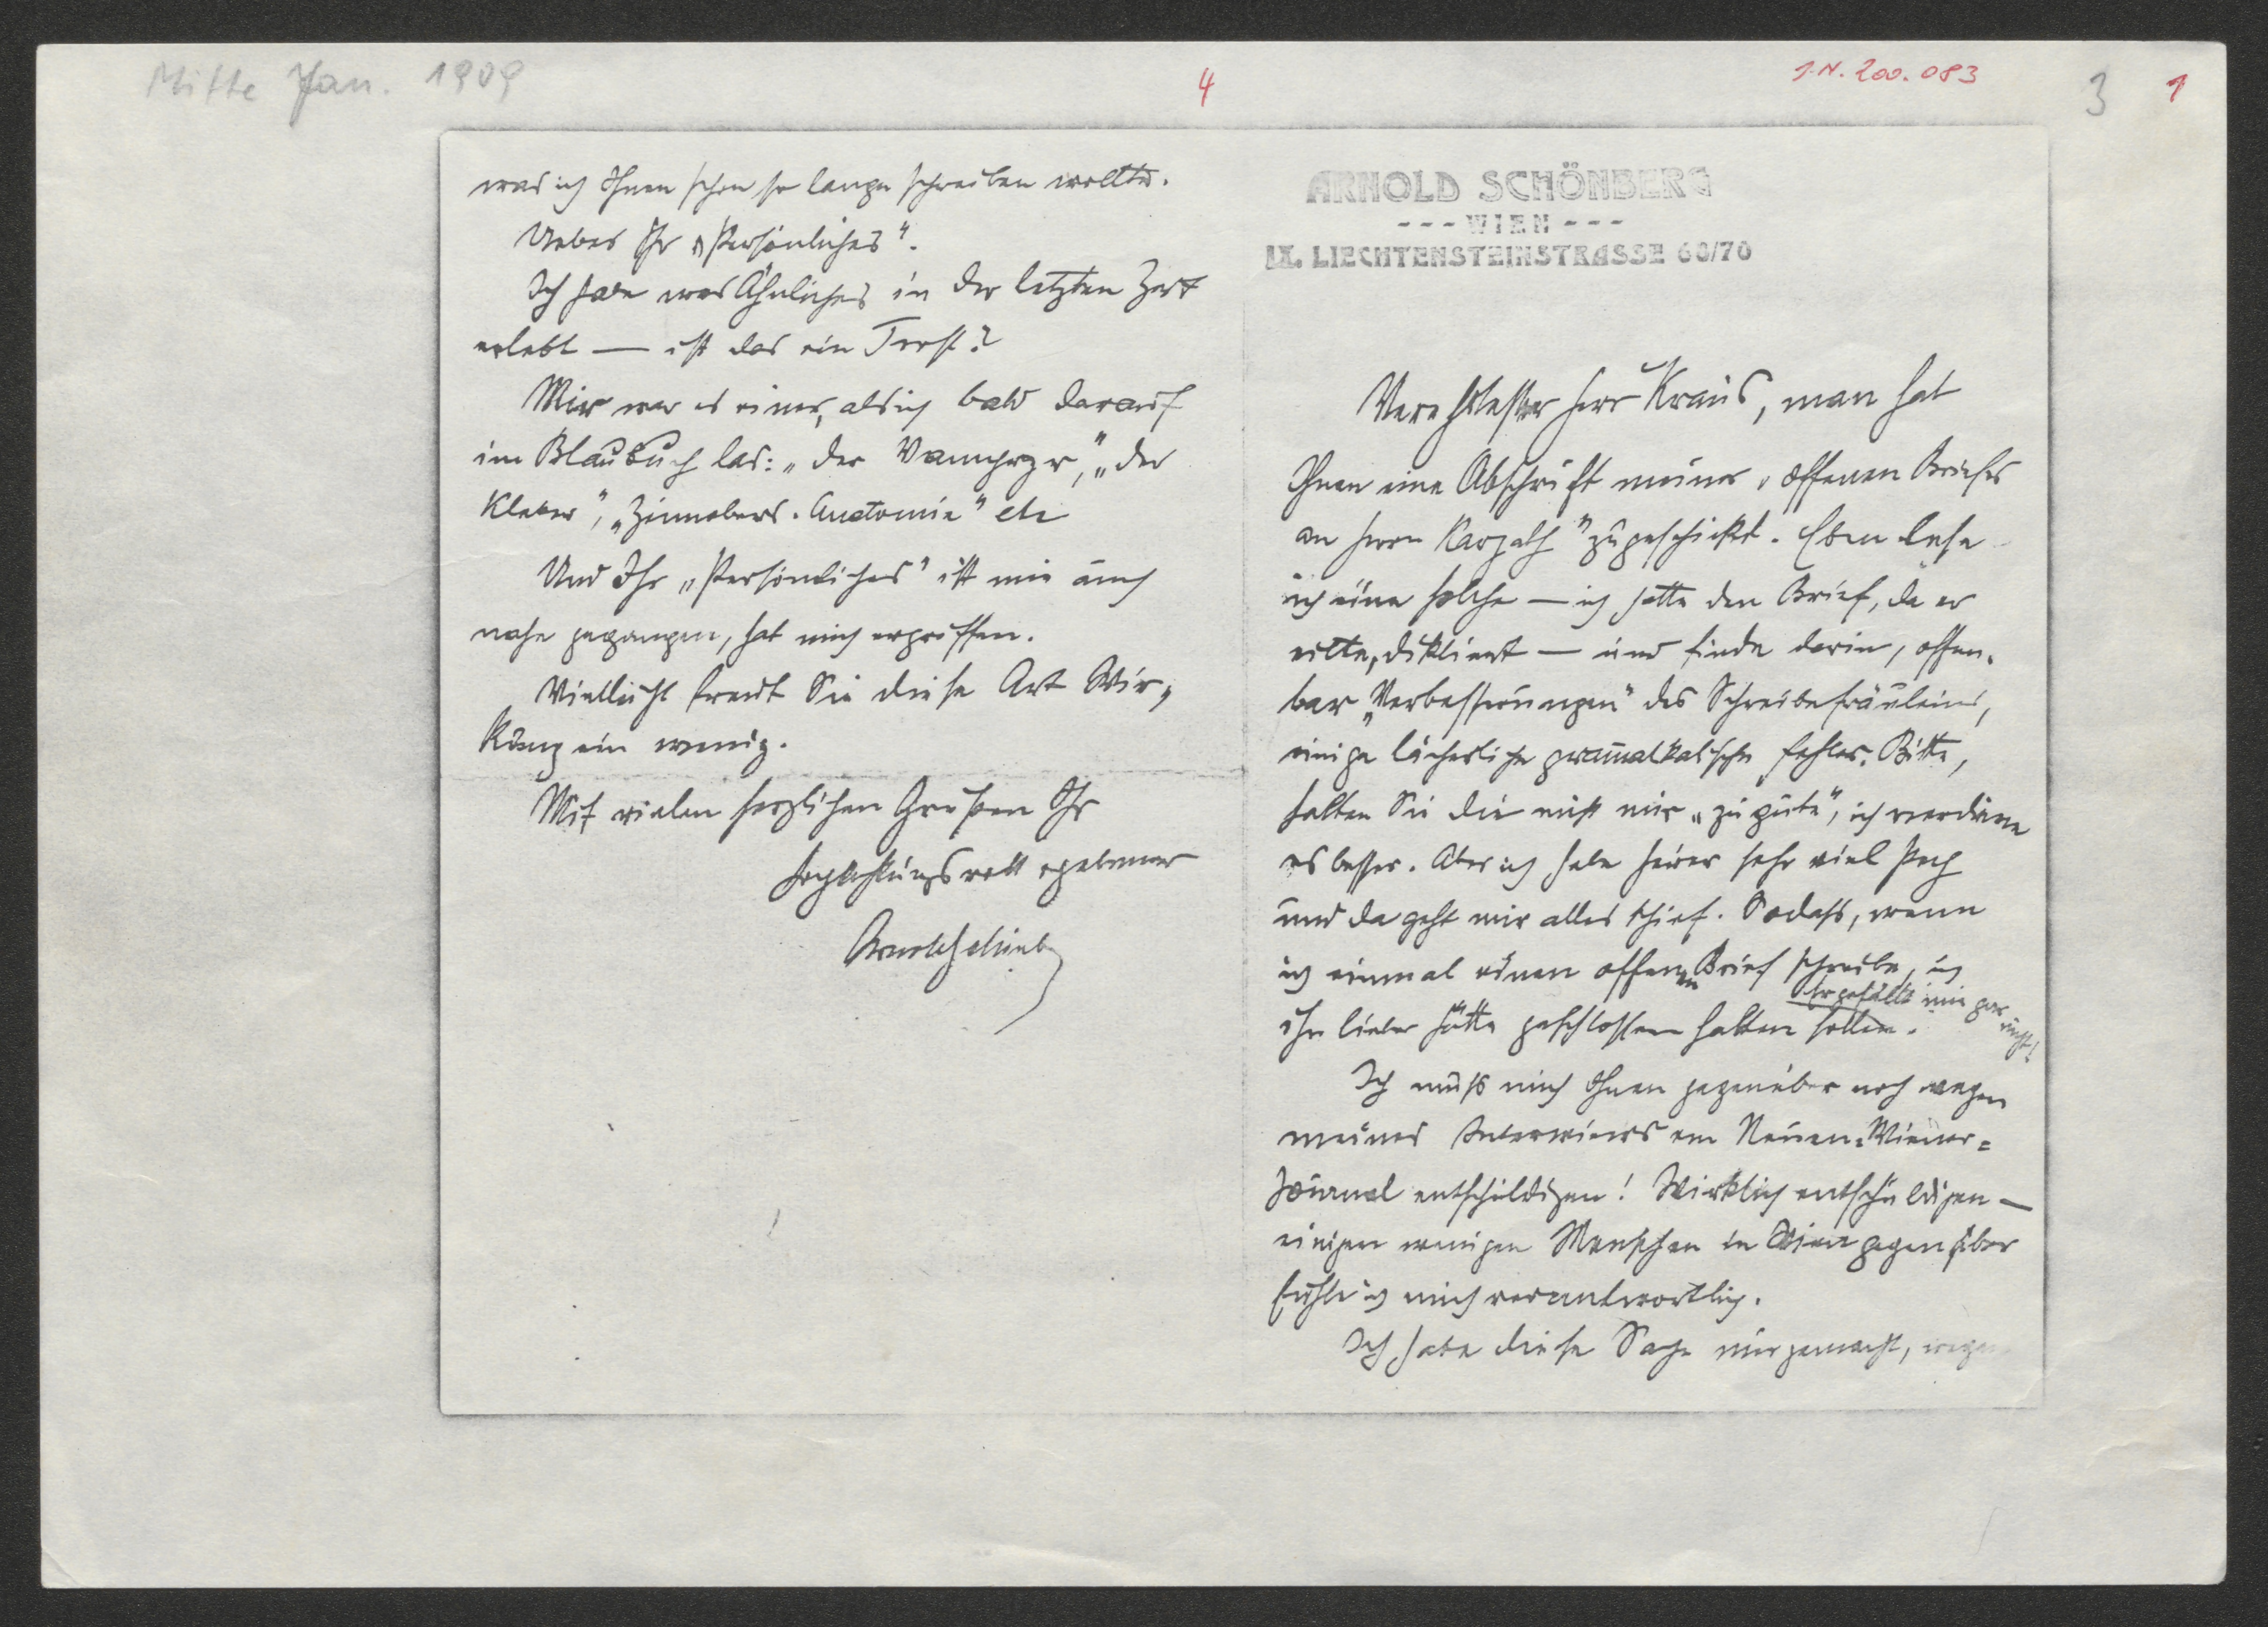 Mitte Jan. 1909
4
I.N. 200.083
3
1
ARNOLD SCHÖNBERG
--- WIEN ---
IX. LIECHTENSTEINSTRASSE 68/70
Verehrtester Herr Kraus, man hat
Ihnen eine Abschrift meines „offenen Briefes
an Herrn Karpath" zugeschickt. Eben lese
ich eine solche — ich hatte den Brief, da er
eilte, diktiert — und finde darin, offen-
bar „Verbesserungen" des Schreibefräuleins,
einige lächerliche grammatikalische Fehler. Bitte,
halten Sie die nicht mir „zugute", ich verdiene
es besser. Aber ich habe heuer sehr viel Pech
und da geht mir alles schief. Sodass, wenn
ich einmal einen offenen Brief schreibe, ich
ihn lieber hätte geschlossen halten sollen.
Er gefällt mir gar nicht!
Ich muß mich Ihnen gegenüber noch wegen
meines Interviews im Neuen-Wiener-
Journal entschuldigen! Wirklich entschuldigen —
einigen wenigen Menschen in Wien gegenüber
fühle ich mich verantwortlich.
Ich habe diese Sache nur gemacht, wegen
was ich Ihnen schon so lange schreiben wollte.
Ueber Ihr „Persönliches".
Ich habe was Ähnliches in der letzten Zeit
erlebt — ist das ein Trost?
Mir war es einer, als ich bald darauf
im Blaubuch las: „Der", „der
Kleber", „Zinnobers-Anatomie" etc
Und Ihr „Persönliches" ist mir auch
nahe gegangen, hat mich ergriffen.
Vielleicht freut Sie diese Art Wir-
kung ein wenig.
Mit vielen herzlichen Grüßen Ihr
hochachtungsvoll ergebener
Arnold Schönberg